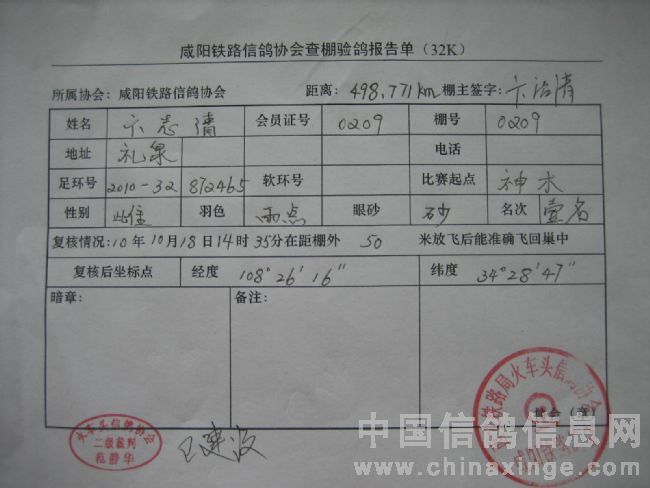 咸阳铁路信鸽协会查棚验鸽报告单（32K）
所属协会：咸阳铁路信鸽协会 距离：498.771km 棚主签字：卞治清
姓名 卞志清 会员证号 0209 棚号 0209
地址 礼泉 电话
足环号 2010-32 872465 软环号 比赛起点 神木
性别 雌 羽色 雨点 眼砂 砂 名次 壹名
复核情况：10年10月18日14时35分在距棚外 50 米放飞后能准确飞回巢中
复核后坐标点 经度 108°26′16″ 纬度 34°28′47″
暗章： 备注：
铁路局火车头信鸽协会
协会（章）
火车头信鸽协会
二级裁判
范静华
中国信鸽信息网
www.chinaxinge.com